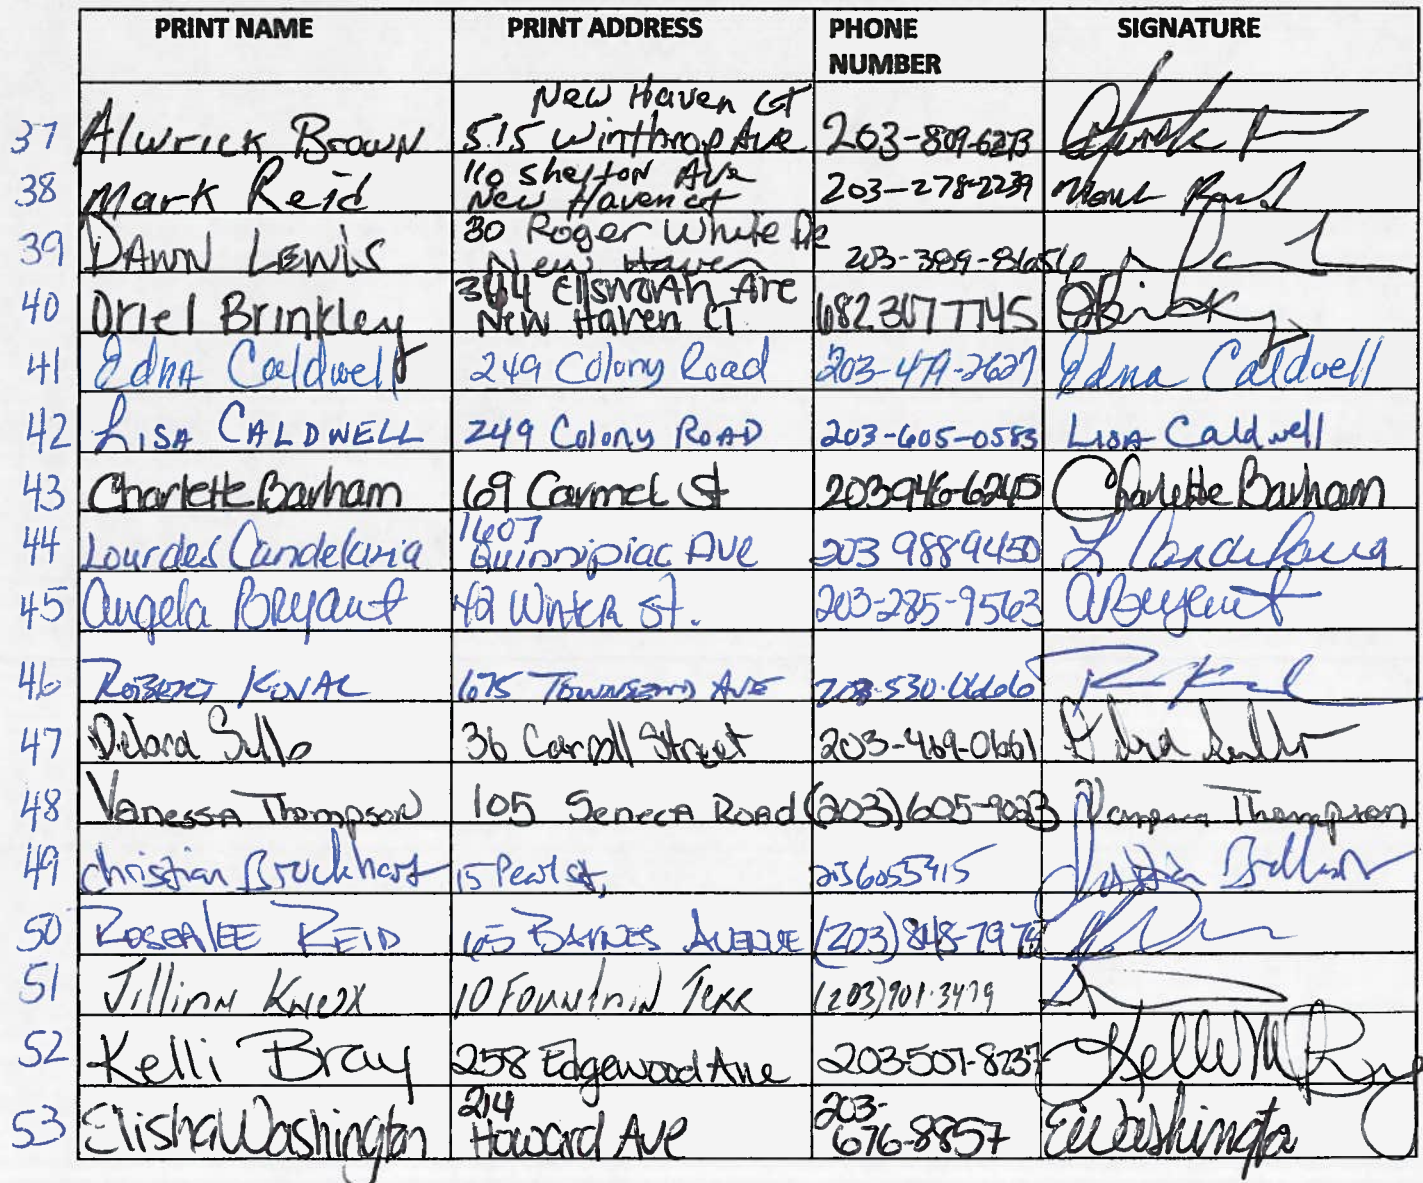 PRINT NAME PRINT ADDRESS PHONE NUMBER SIGNATURE
37 Alwrick Brown 515 Winthrop Ave New Haven CT 203-809-6273
38 Mark Reid 110 Shelton Ave New Haven ct 203-278-2239 Mark Reid
39 DAWN LEWIS 30 Roger White Dr New Haven 203-389-8656
40 Oriel Brinkley 344 Ellsworth Ave New Haven CT 682 317 7745
41 Edna Caldwell 249 Colony Road 203-479-2627 Edna Caldwell
42 LISA CALDWELL 249 Colony ROAD 203-605-0583 LISA Caldwell
43 Charlette Barham 69 Carmel St 203946-6245 Charlette Barham
44 Lourdes Candelaria 1607 Quinnipiac AVE 203 9889450 L Candelaria
45 Angela Bryant 42 Winter St. 203-285-9563 ABryant
46 ROBERT KOVAL 675 TOWNSEND AVE 203-530-0666
47 Delora Sullo 36 Carroll Street 203-469-0661
48 Vanessa Thompson 105 Seneca Road (203)605-9023 Vanessa Thompson
49 Christian Bruckhart 15 Pearl St, 2036055415
50 ROSEALEE REID 65 BARNES AVENUE (203)848-7975
51 Jillian Knox 10 Fountain Terr (203)901-3479
52 Kelli Bray 258 Edgewood Ave 203-507-8237
53 Elisha Washington 214 Howard Ave 203-676-8857 EWashington